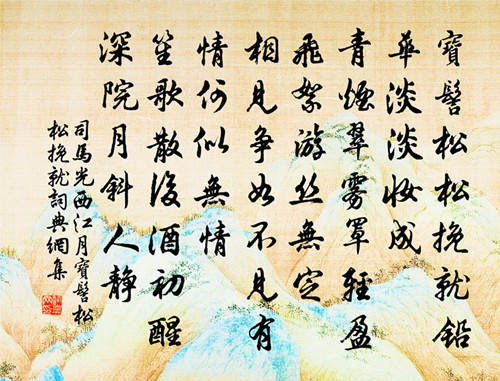 寶髻松松挽就鉛
華淡淡妝成
青煙翠霧罩輕盈
飛絮游絲無定
相見爭如不見有
情何似無情
笙歌散後酒初醒
深院月斜人靜
司馬光西江月寶髻松
松挽就詞典網集